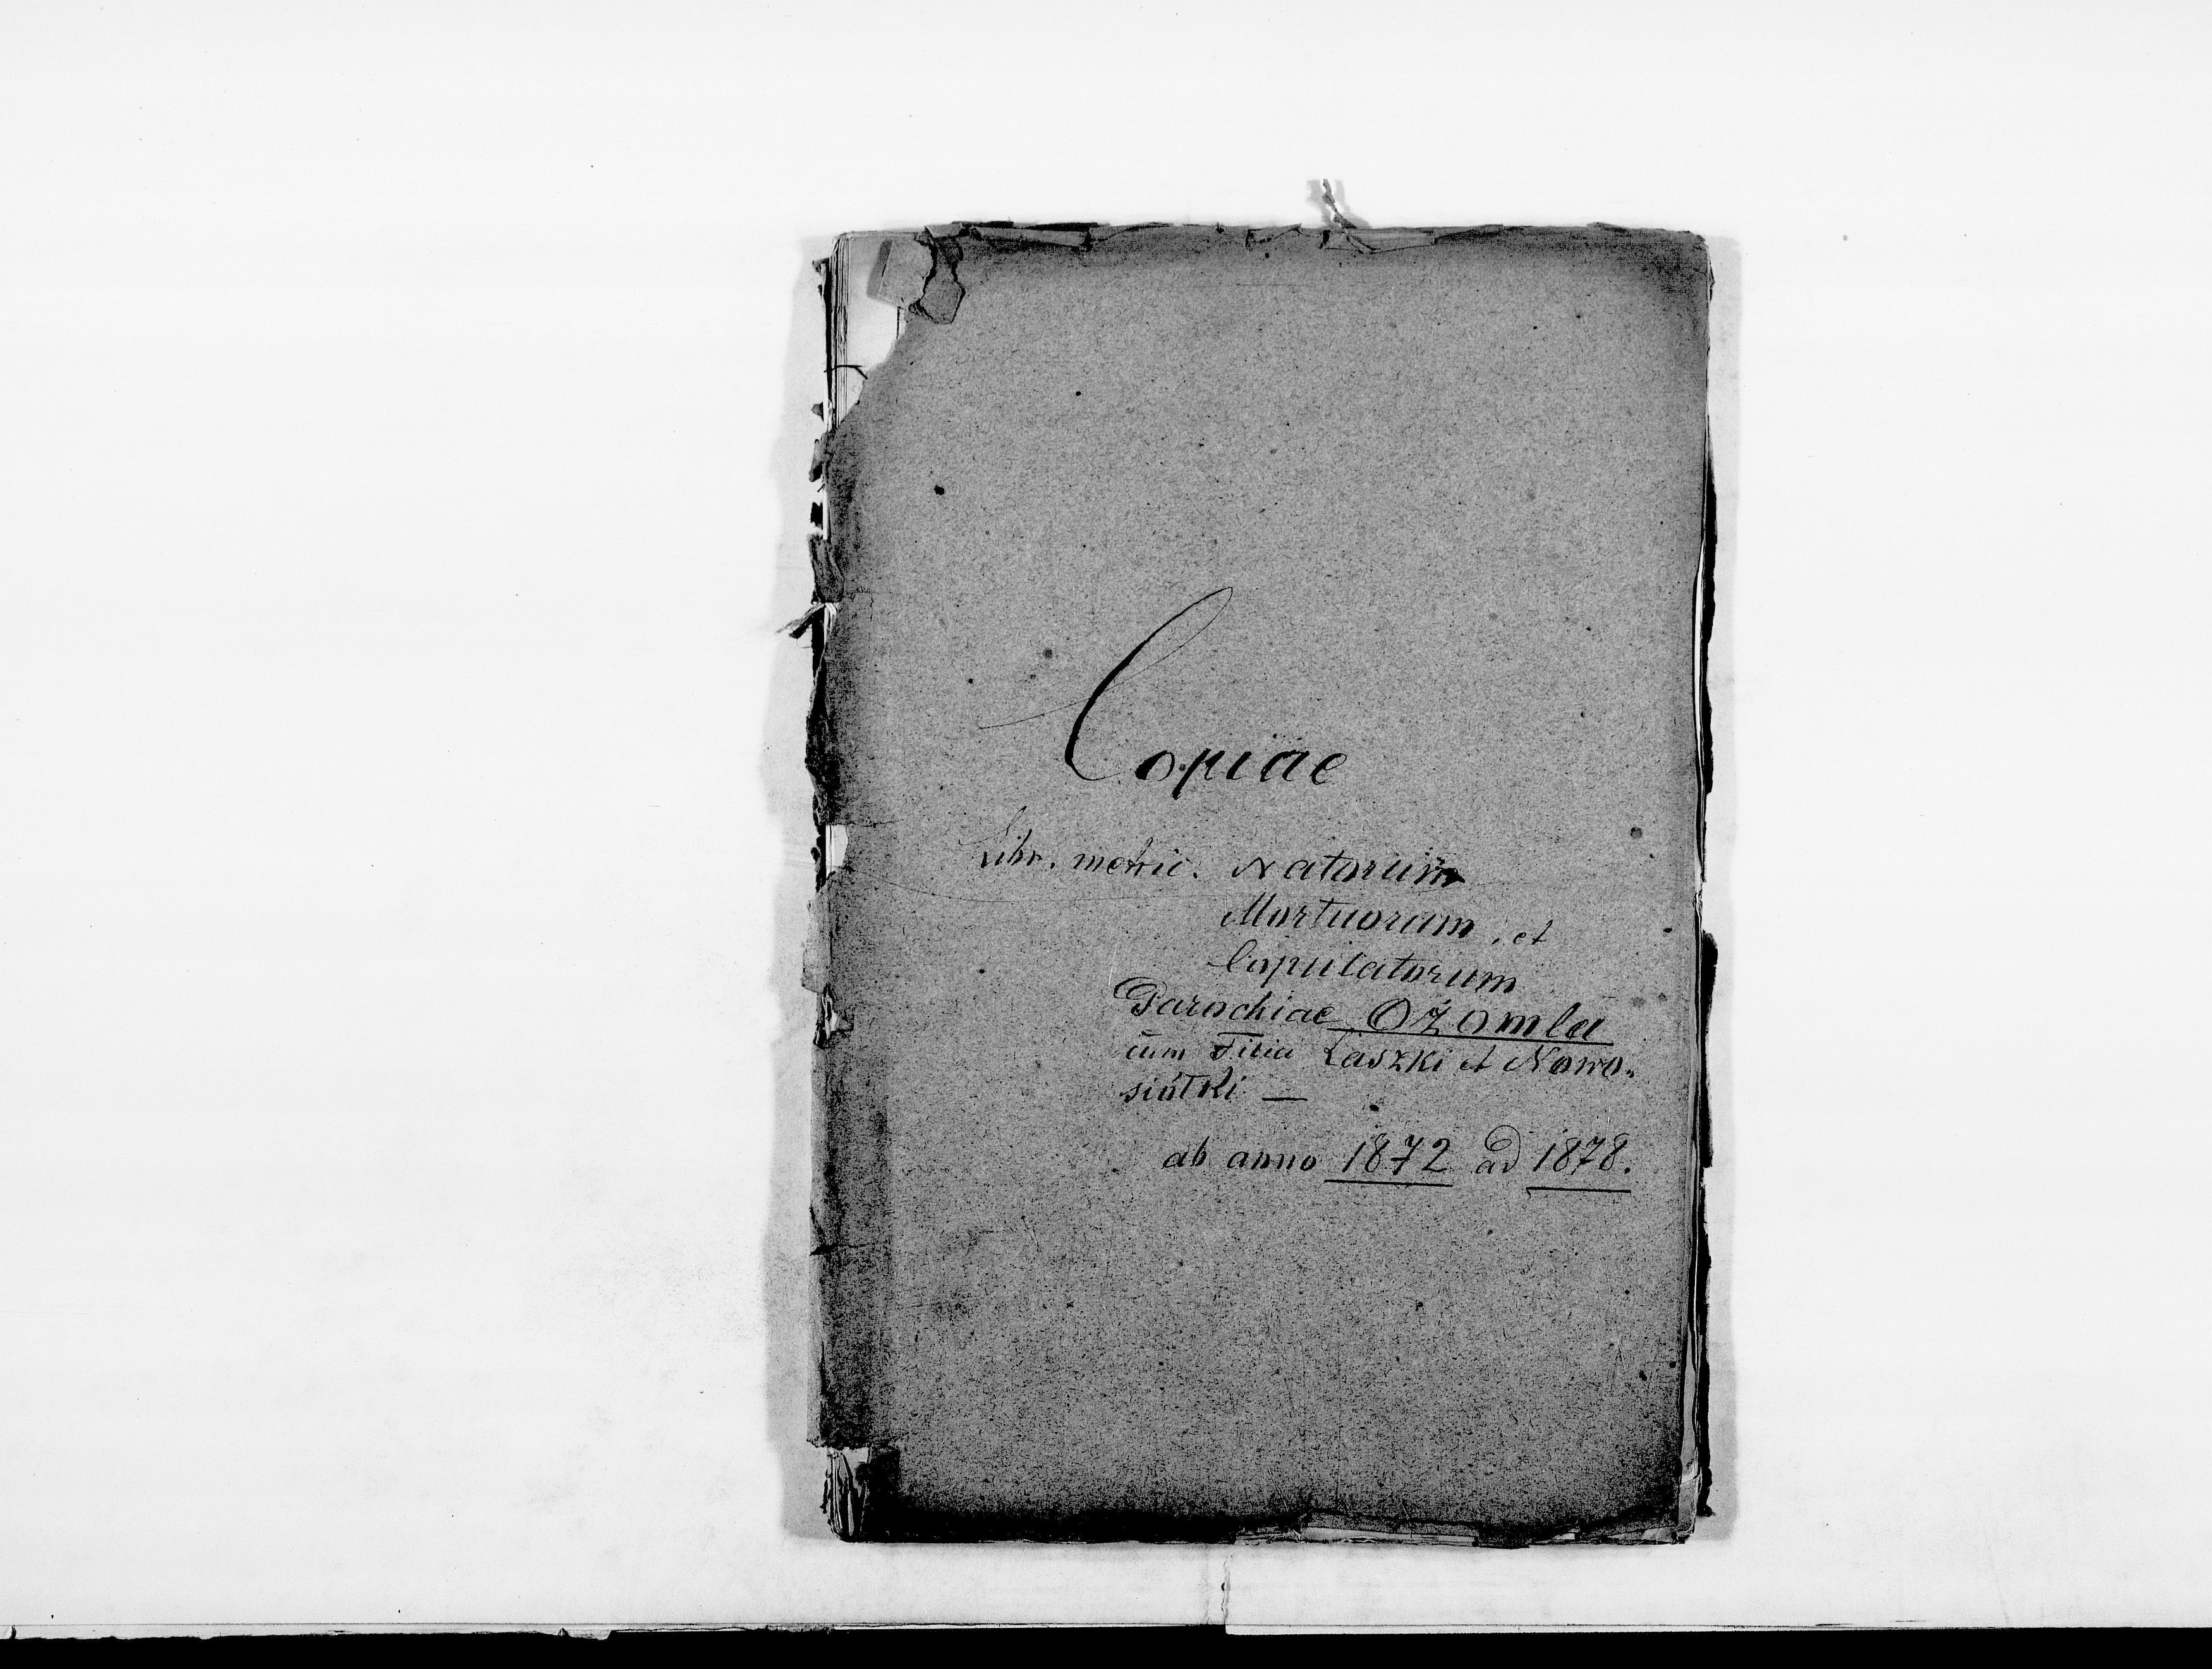 Copiae
Libr. metric. Natorum
Mortuorum, et
Copulatorum
Parochiae Ożomla
cum Filia Łaszki et Nowo-
siółki —
ab anno 1872 ad 1878.